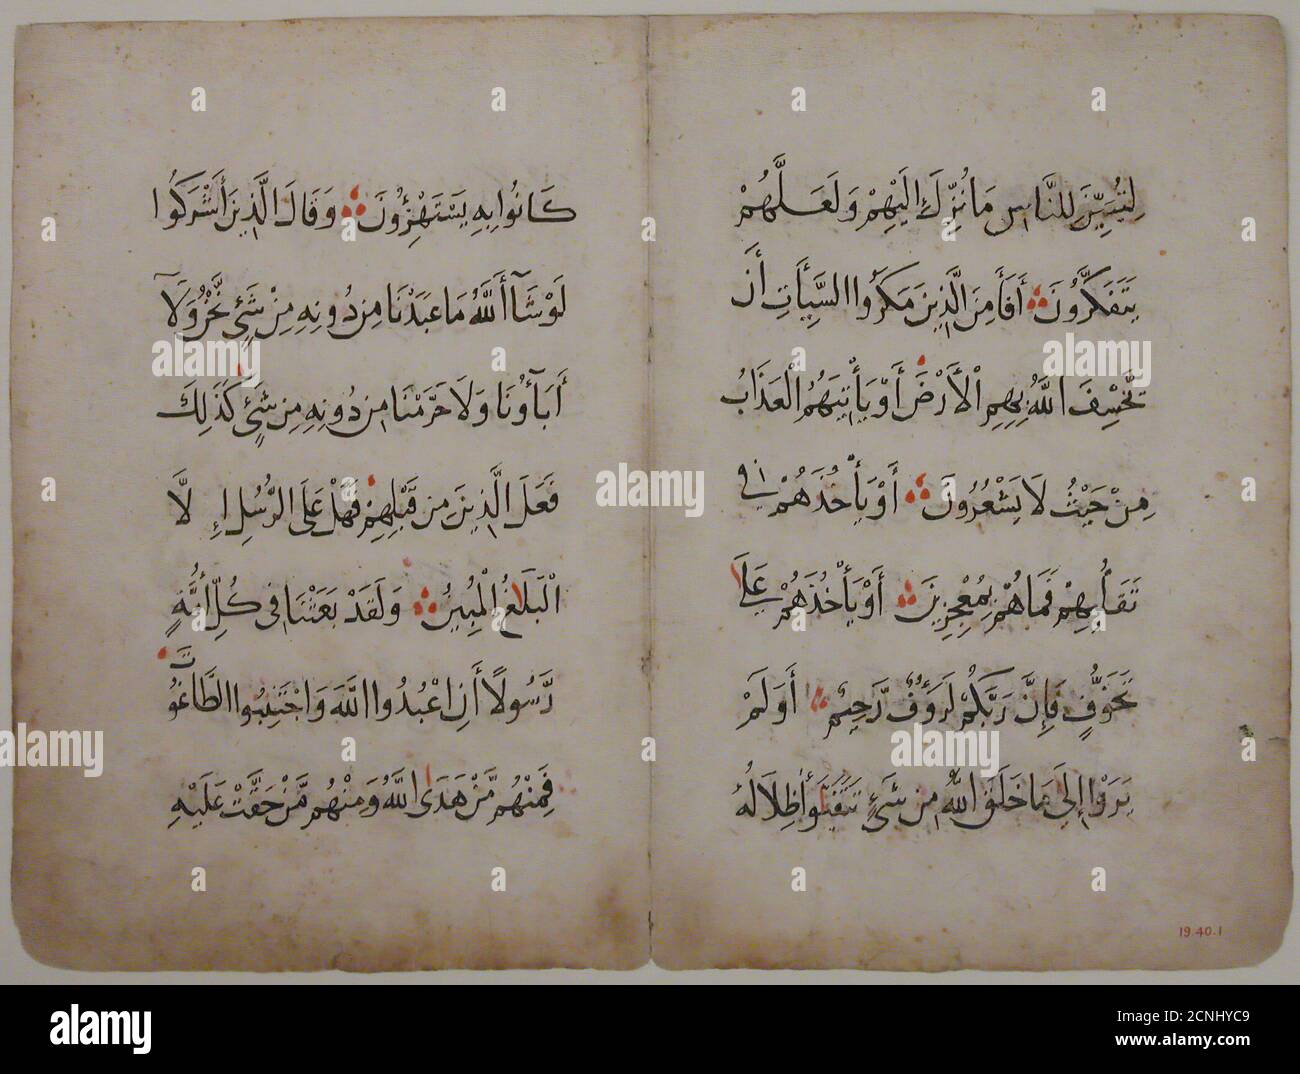 لِتُبَيِّنَ لِلنَّاسِ مَا نُزِّلَ إِلَيْهِمْ وَلَعَلَّهُمْ
يَتَفَكَّرُونَ أَفَأَمِنَ الَّذِينَ مَكَرُوا السَّيِّأَتِ أَنْ
يَخْسِفَ اللَّهُ بِهِمِ الْأَرْضَ أَوْ يَأْتِيَهُمُ الْعَذَابُ
مِنْ حَيْثُ لَا يَشْعُرُونَ أَوْ يَأْخُذَهُمْ فِي
تَقَلُّبِهِمْ فَمَا هُمْ بِمُعْجِزِينَ أَوْ يَأْخُذَهُمْ عَلَى
تَخَوُّفٍ فَإِنَّ رَبَّكُمْ لَرَؤُفٌ رَّحِيمٌ أَوَلَمْ
يَرَوْا إِلَى مَا خَلَقَ اللَّهُ مِنْ شَيْءٍ يَتَفَيَّؤُا ظِلَالُهُ
كَانُوا بِهِ يَسْتَهْزِؤُنَ وَقَالَ الَّذِينَ أَشْرَكُوا
لَوْ شَآءَ اللَّهُ مَا عَبَدْنَا مِن دُونِهِ مِنْ شَيْءٍ نَّحْنُ وَلَآ
أَبَآؤُنَا وَلَا حَرَّمْنَا مِن دُونِهِ مِن شَيْءٍ كَذَلِكَ
فَعَلَ الَّذِينَ مِن قَبْلِهِمْ فَهَلْ عَلَى الرُّسُلِ إِلَّا
الْبَلَغُ الْمُبِينُ وَلَقَدْ بَعَثْنَا فِي كُلِّ أُمَّةٍ
رَّسُولًا أَنِ اعْبُدُوا اللَّهَ وَاجْتَنِبُوا الطَّاغُوتَ
فَمِنْهُم مَّنْ هَدَى اللَّهُ وَمِنْهُم مَّنْ حَقَّتْ عَلَيْهِ
19.40.1
alamy
alamy
Image ID: 2CNHYC9
www.alamy.com